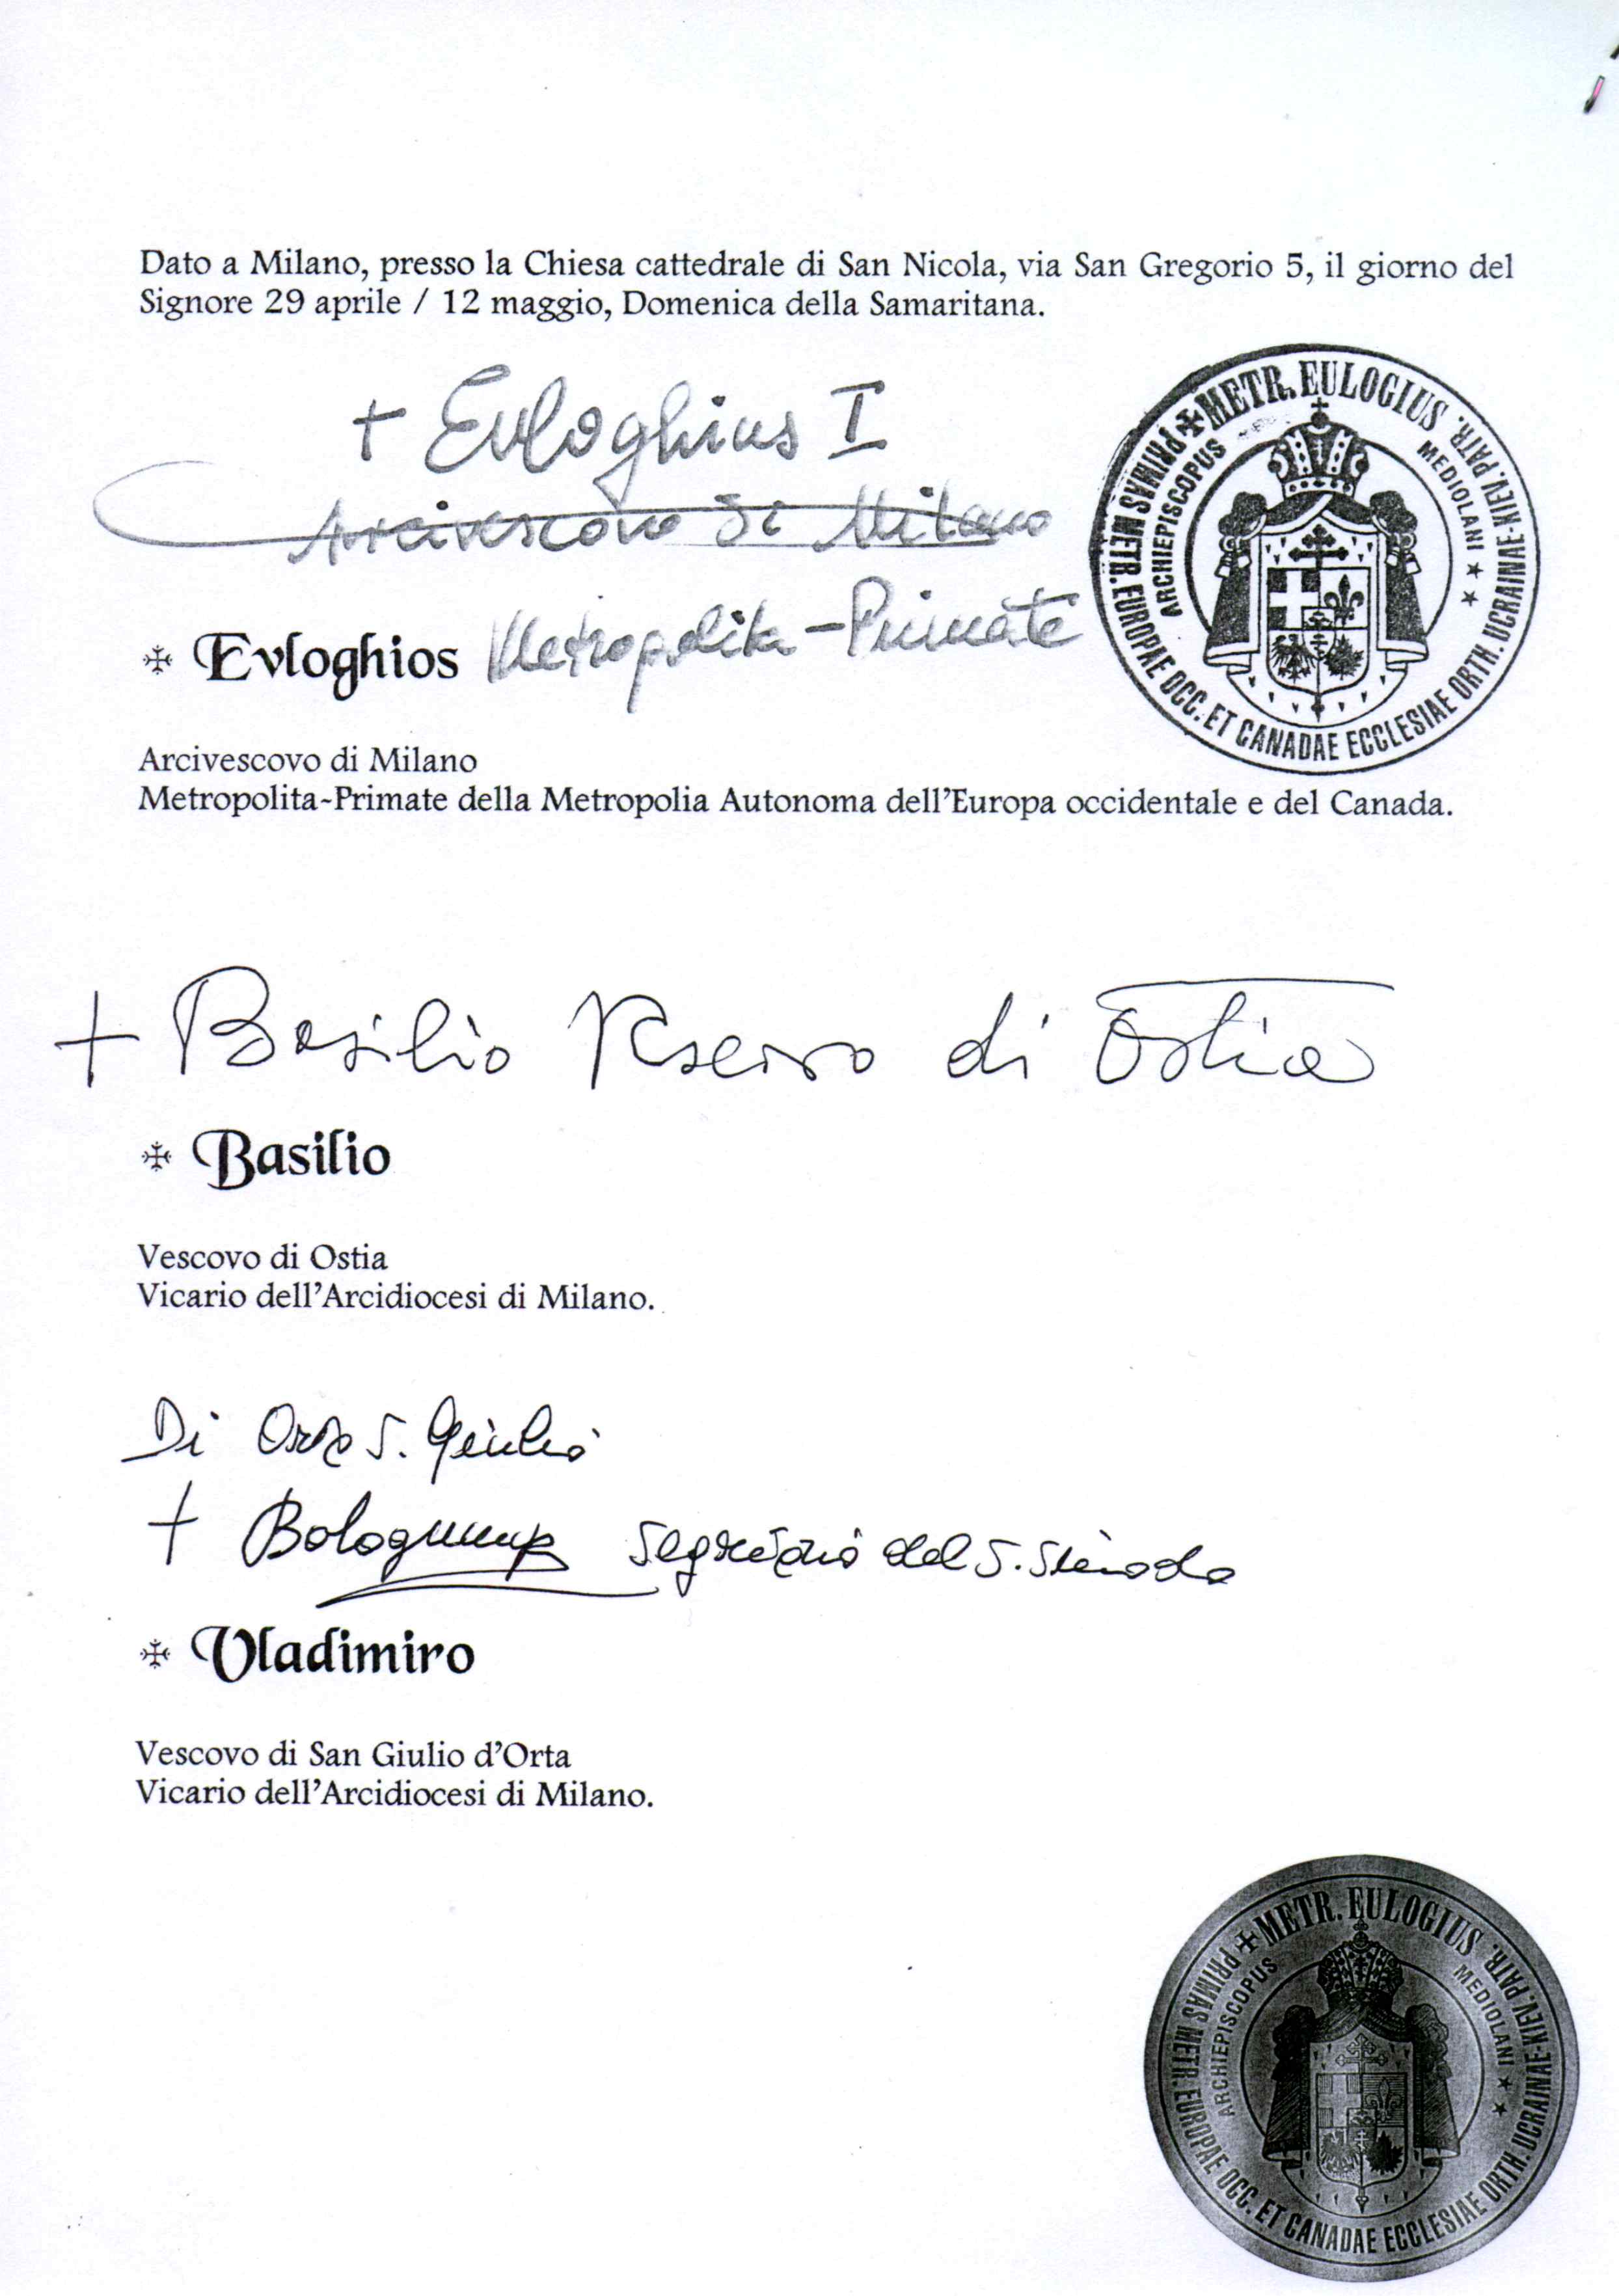 Dato a Milano, presso la Chiesa cattedrale di San Nicola, via San Gregorio 5, il giorno del
Signore 29 aprile / 12 maggio, Domenica della Samaritana.
+ Evloghius I
Arcivescovo di Milano
Metropolita - Primate
✠ METR. EULOGIUS PATR.
PRIMAS METR. EUROPAE OCC. ET CANADAE ECCLESIAE ORTH. UCRAINAE-KIEV.
ARCHIEPISCOPUS MEDIOLANI ★ ★
✠ Evloghios
Arcivescovo di Milano
Metropolita-Primate della Metropolia Autonoma dell'Europa occidentale e del Canada.
+ Basilio Vescovo di Ostia
✠ Basilio
Vescovo di Ostia
Vicario dell'Arcidiocesi di Milano.
Di Orta S. Giulio
+ Segretario del S. Sinodo
✠ Vladimiro
Vescovo di San Giulio d'Orta
Vicario dell'Arcidiocesi di Milano.
✠ METR. EULOGIUS PATR.
PRIMAS METR. EUROPAE OCC. ET CANADAE ECCLESIAE ORTH. UCRAINAE-KIEV.
ARCHIEPISCOPUS MEDIOLANI ★ ★